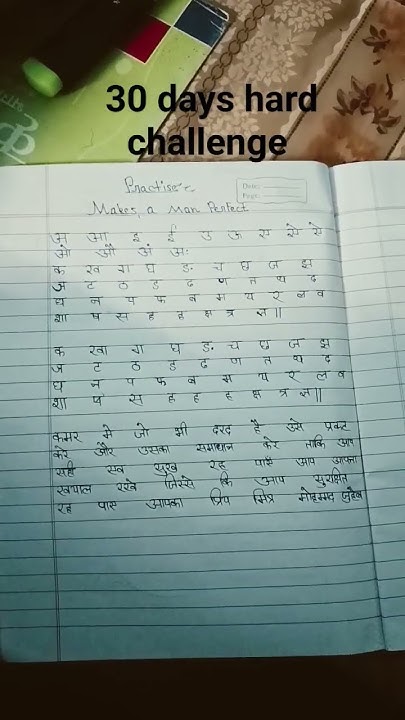 30 days hard
challenge
Practise
Date:
Page:
Makes a Man Perfect
अ आ इ ई उ ऊ ए ऐ
ओ औ अं अः
क ख ग घ ङ च छ ज झ
ञ ट ठ ड ढ ण त थ द
ध न प फ ब म य र ल व
शा ष स ह ह क्ष त्र ज्ञ ||
क खा ग घ ङ च छ ज झ
ञ ट ठ ड ढ ण त थ द
ध न प फ ब म य र ल व
शा ष स ह ह ह क्ष त्र ज्ञ ||
कमर मे जो भी दरद है उसे प्रकट
करे और उसका समाधान करे ताकि आप
सही सुख रह पाऐ आप आपना
रखे जिस्से कि आप सुरक्षित
रह पाऐ आपका प्रिय मित्र मोहम्मद